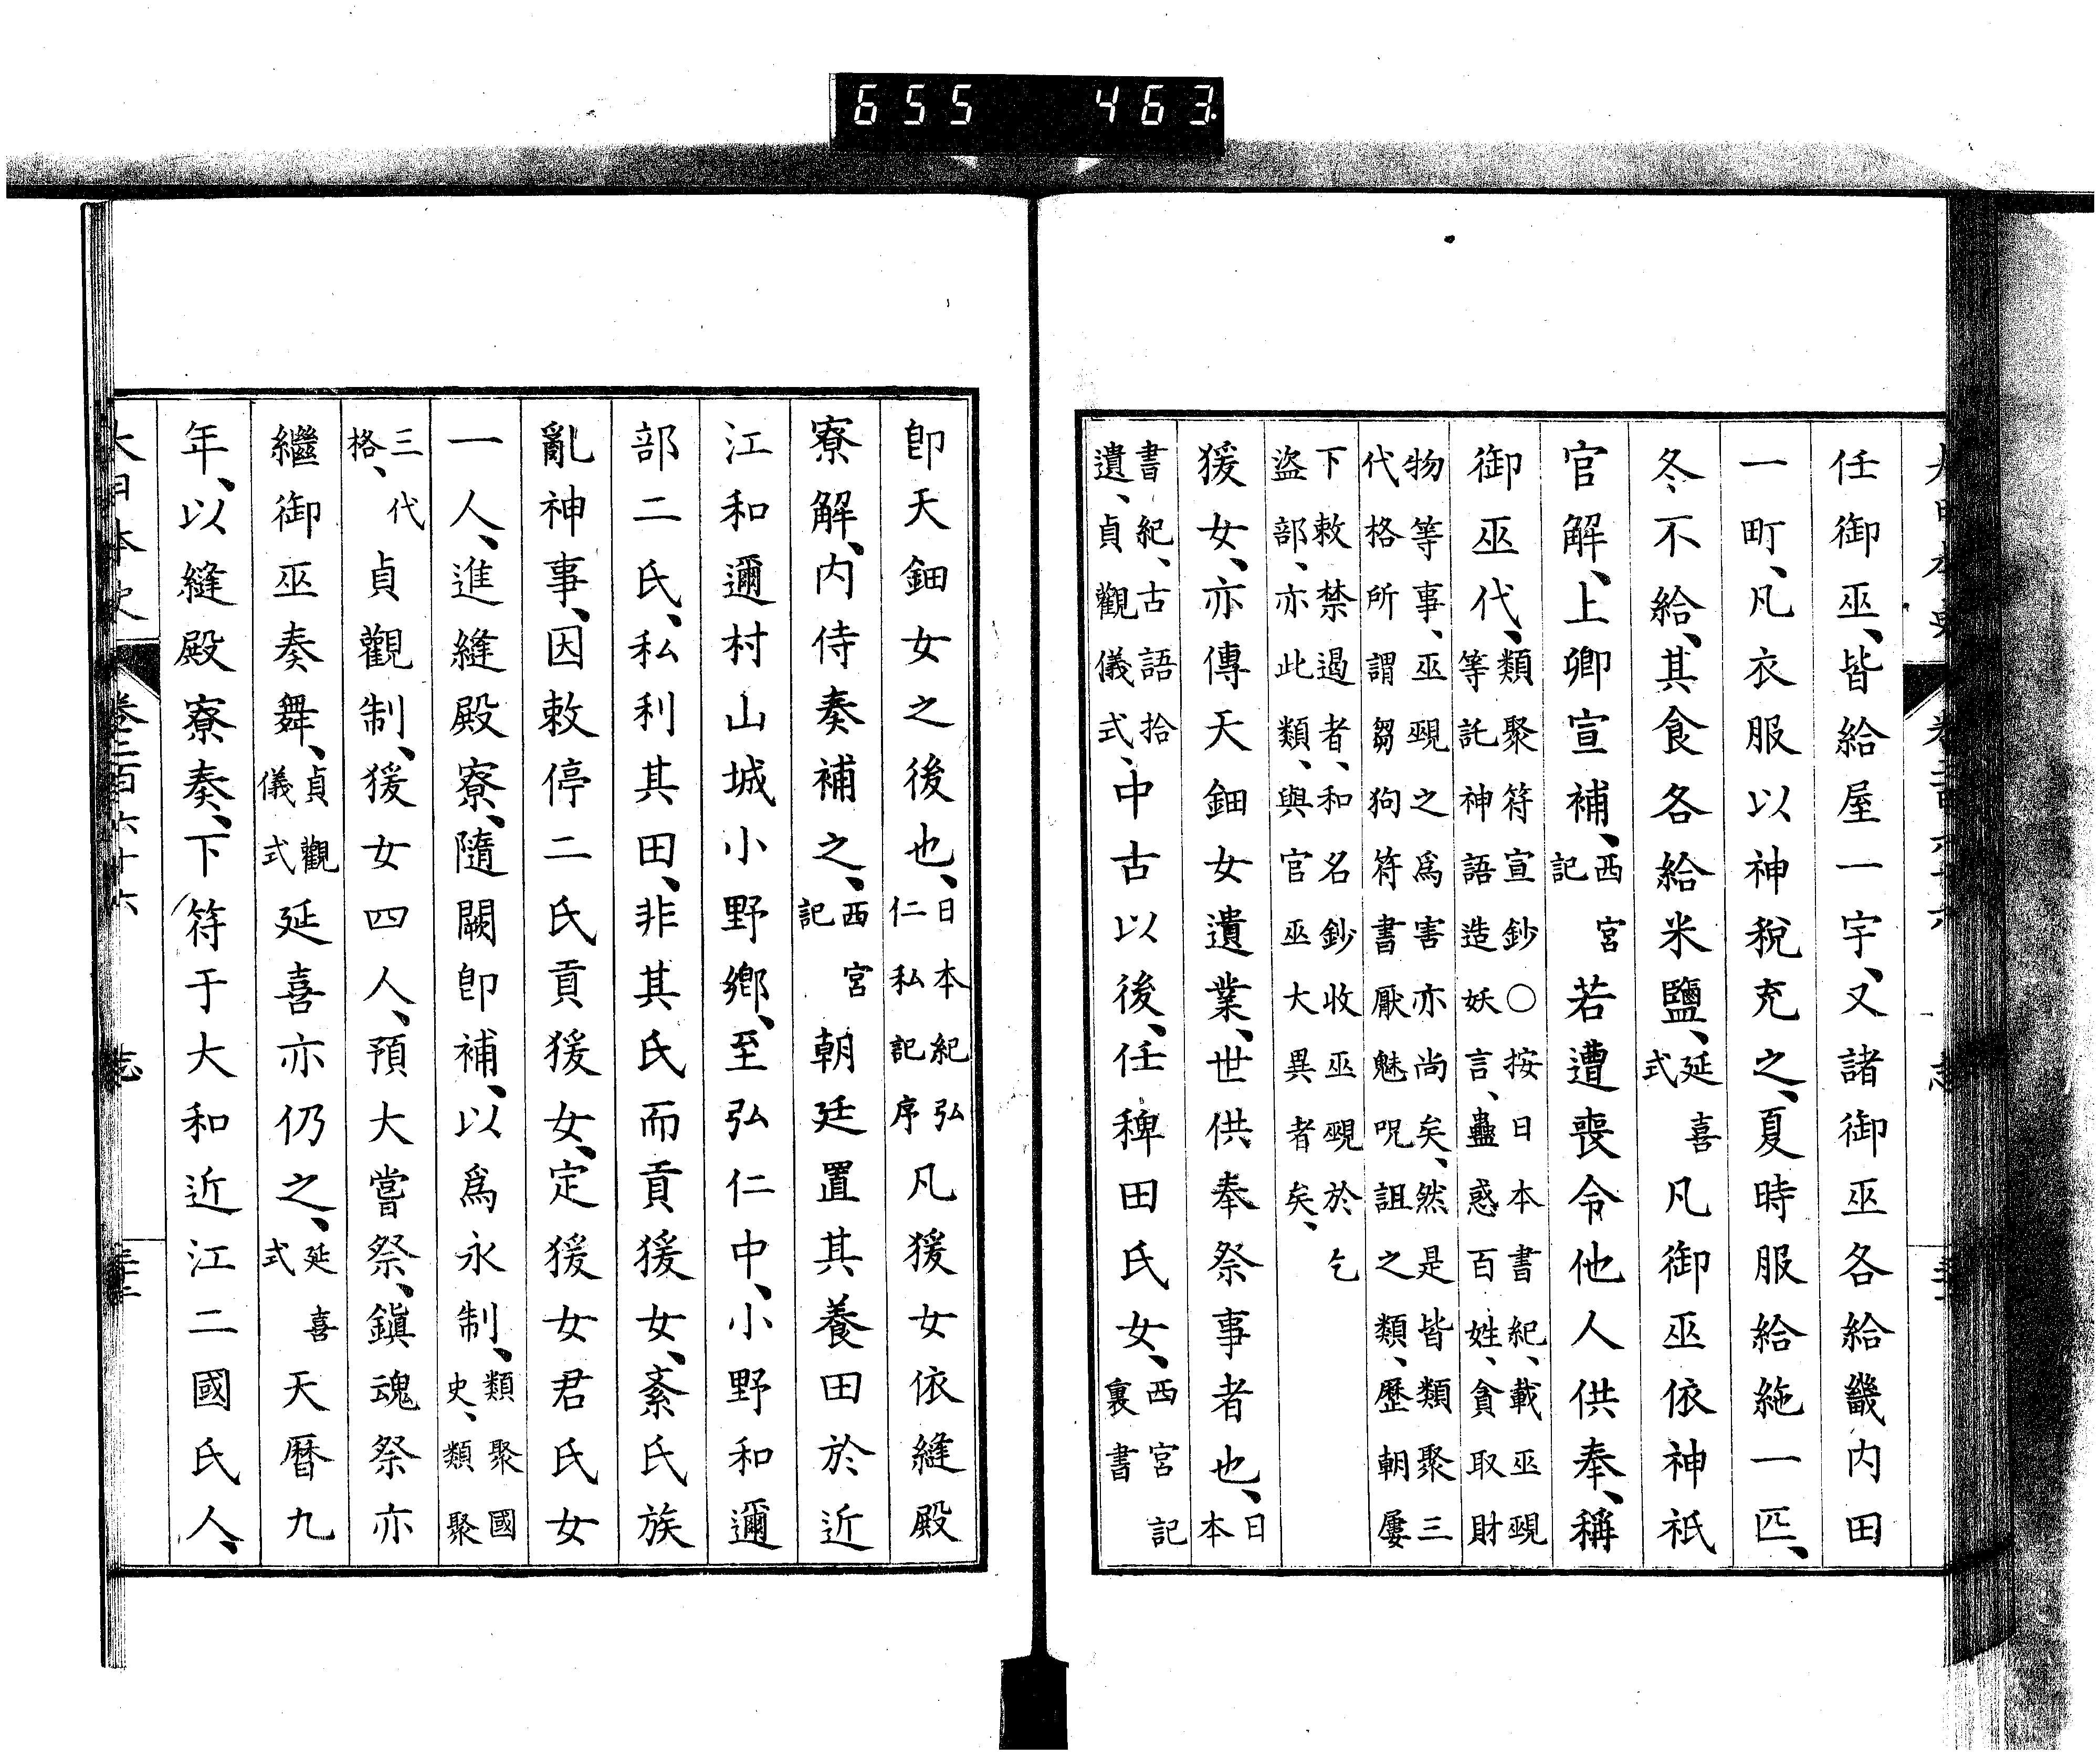 655 463
任御巫、皆給屋一宇、又諸御巫各給畿内田
一町、凡衣服以神稅充之、夏時服給絁一匹、
冬不給、其食各給米鹽、延喜式凡御巫依神祇
官解、上卿宣補、西宮記若遭喪令他人供奉、稱
御巫代、類聚符宣鈔〇按日本書紀、載巫覡等託神語造妖言、蠱惑百姓、貪取財
物等事、巫覡之爲害亦尚矣、然是皆類聚三代格所謂芻狗符書厭魅呪詛之類、歷朝屢
下敕禁遏者、和名鈔收巫覡於乞盜部、亦此類、與官巫大異者矣、
猨女、亦傳天鈿女遺業、世供奉祭事者也、日本
書紀、古語拾遺、貞觀儀式、中古以後、任稗田氏女、西宮記裏書
卽天鈿女之後也、日本紀弘仁私記序凡猨女依縫殿
寮解、内侍奏補之、西宮記朝廷置其養田於近
江和邇村山城小野鄕、至弘仁中、小野和邇
部二氏、私利其田、非其氏而貢猨女、紊氏族
亂神事、因敕停二氏貢猨女、定猨女君氏女
一人、進縫殿寮、隨闕卽補、以爲永制、類聚國史、類聚
三代格、貞觀制、猨女四人、預大嘗祭、鎭魂祭亦
繼御巫奏舞、貞觀儀式延喜亦仍之、延喜式天曆九
年、以縫殿寮奏、下符于大和近江二國氏人、
大日本史 卷二百六十六 志